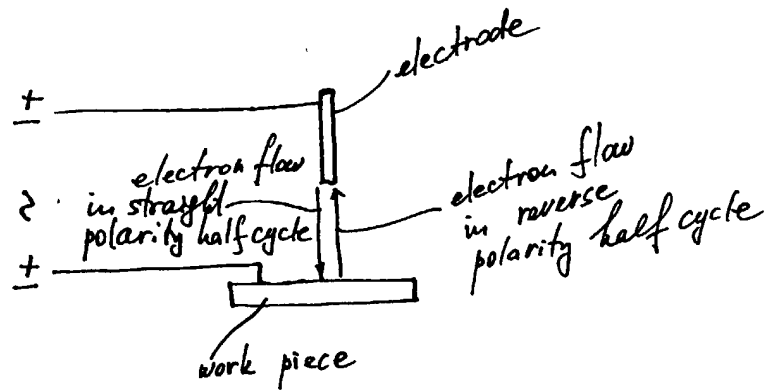 electrode
±
electron flow
in straight
polarity half cycle
~
electron flow
in reverse
polarity half cycle
±
work piece